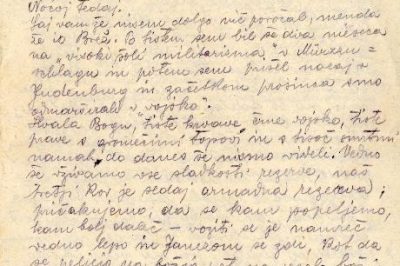 Nocoj sedaj.
Saj vam že nisem dolgo nič poročal, menda
že iz Brež. Po tistem sem bil še dva meseca
na „visoki šoli militarizma" v Mürzzu-
schlagu in potem sem prišel nazaj v
Judenburg in začetkom prosinca smo
odmarširali v „vojsko".
Hvala Bogu, tiste krvave črne vojske, tiste
prave s gromečimi topovi in s tisoč smrtmi
nismo do danes še videli. Vedno
še uživamo vse sladkosti rezerve, naš
tretji kor je sedaj armadna rezerva;
pričakujemo, da se kam popeljemo,
kam bolj daleč – vojski se je namreč
vedno lepo in Janezom se zdi, kot da
se peljejo na